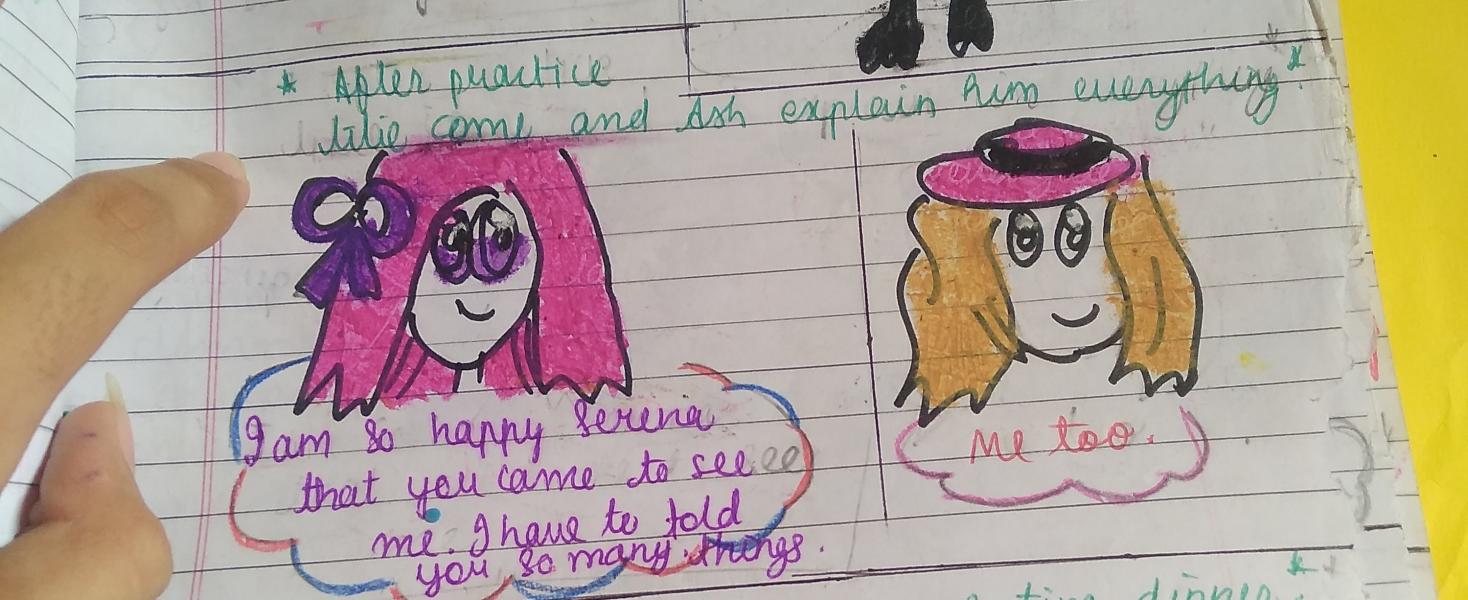 * After practice
lilie come and Ash explain him everything.*
I am so happy Serena
that you came to see
me. I have to told
you so many things.
Me too.
time dinner *